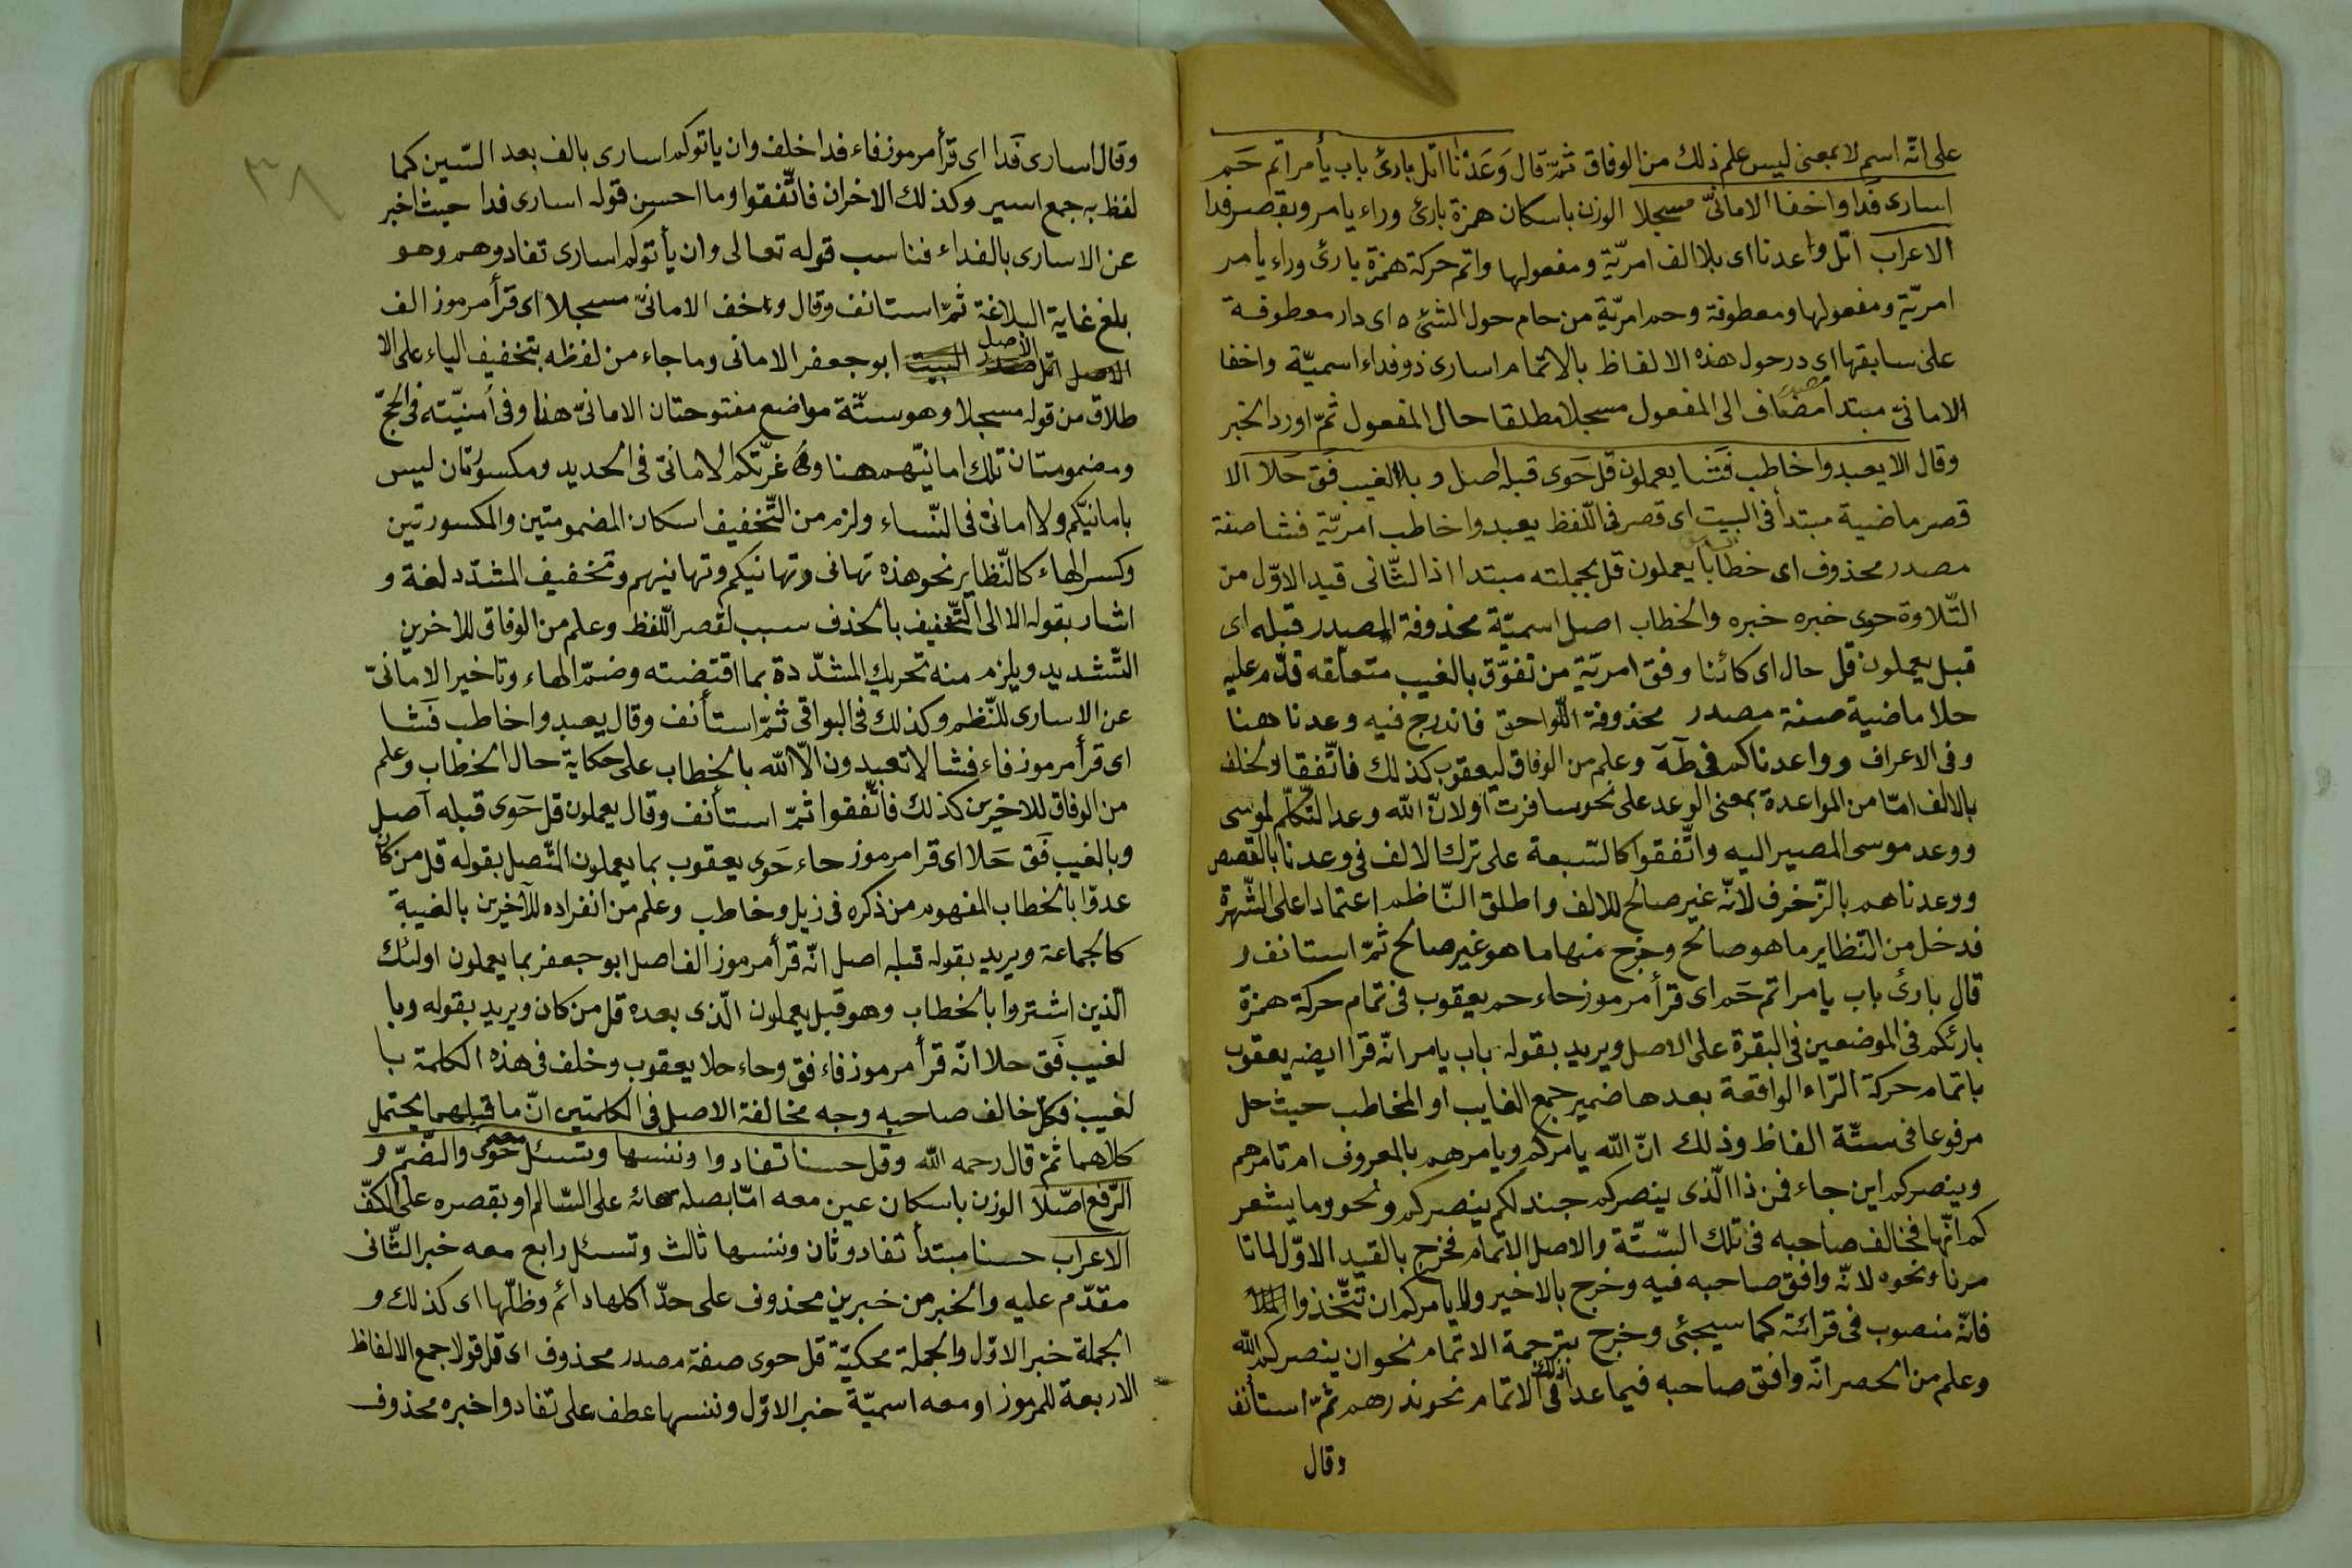 على انّه اسم لا بمعنى ليس علم ذلك من الوفاق ثمّ قال وَعَدْنا اتل بارئ باب يأمر اتم حَم
اسارى فدا واخفا الامانىّ مسجلا الوزن باسكان همزة بارئ وراء يامر وبقصر فدا
الاعراب اتل واعدنا اى بلا الف امريّة ومفعولها واتم حركة همزة بارئ وراء يامر
امريّة ومفعولها ومعطوفة وحم امريّة من حام حول الشئ ه اى دار معطوفة
على سابقها اى در حول هذه الالفاظ بالاتمام اسارى ذو فداء اسميّة واخفا
الامانىّ مبتدا مضاف الى المفعول مسجلا مطلقا حال المفعول ثمّ اورد الخبر
وقال الا يعبدوا خاطب فَشا يعملون قل حَوى قبله اصل وبالغيب فَق حَلا الا
قصر ماضية مبتدأ فى البيت اى قصر فى اللّفظ يعبدوا خاطب امريّة فشا صفة
مصدر محذوف اى خطابا يعملون قل بجملته مبتدا اذ الثّانى قيد الاوّل من
التّلاوة حوى خبره خبره والخطاب اصل اسميّة محذوفة المصدر قبله اى
قبل يعملون قل حال اى كائنا وفق امريّة من تفوّق بالغيب متعلّقه قدّم عليه
حلا ماضية صفة مصدر محذوفة اللّواحق فاندرج فيه وعدنا هنا
وفى الاعراف وواعدناكم فى طه وعلم من الوفاق ليعقوب كذلك فاتّفقا ولخلف
بالالف امّا من المواعدة بمعنى الوعد على نحو سافرت اولانّ الله وعد التّكلّم لموسى
ووعد موسى المصير اليه واتّفقوا كالسّبعة على ترك الالف فى وعدنا بالقصص
ووعدناهم بالزّخرف لانّه غير صالح للالف واطلق النّاظم اعتمادا على الشّهرة
فدخل من النّظاير ما هو صالح وخرج منها ما هو غير صالح ثمّ استانف و
قال بارئ باب يامر اتم حَم اى قرأ مرموز حاء حم يعقوب فى تمام حركة همزة
بارئكم فى الموضعين فى البقرة على الاصل ويريد بقوله باب يامر انّه قرا ايضه يعقوب
باتمام حركة الرّاء الواقعة بعدها ضمير جمع الغايب او المخاطب حيث حل
مرفوعا فى ستّة الفاظ وذلك انّ الله يامركم ويامرهم بالمعروف ام تامرهم
وينصركم اين جاء فمن ذا الّذى ينصركم جند لكم ينصركم ونحو وما يشعر
كم انّها فخالف صاحبه فى تلك السّتّة والاصل الاتمام فخرج بالقيد الاوّل لما تا
مرنا ونحوه لانّه وافق صاحبه فيه وخرج بالاخير ولا يامركم ان تتّخذوا
فانّه منصوب فى قرائته كما سيجئى وخرج بترجمة الاتمام نحو ان ينصركم الله
وعلم من الحصر انّه وافق صاحبه فيما عدا ذلك فى الاتمام نحو نذرهم ثمّ استأنف
وقال
٣٨
وقال اسارى فَدا اى قرأ مرموز فاء فدا خلف وان ياتوكم اسارى بالف بعد السّين كما
لفظ به جمع اسير وكذلك الاخران فاتّفقوا وما احسن قوله اسارى فدا حيث اخبر
عن الاسارى بالفداء فناسب قوله تعالى وان يأتوكم اسارى تفادوهم وهو
بلغ غاية البلاغة ثمّ استانف وقال واخف الامانىّ مسجلا اى قرأ مرموز الف
الاصل ابو جعفر الامانى وما جاء من لفظه بتخفيف الياء على الا
طلاق من قوله مسجلا وهو ستّة مواضع مفتوحتان الامانىّ هذا وفى أمنيّته فى الحجّ
ومضمومتان تلك امانيّهم هنا و غرّتكم الامانىّ فى الحديد ومكسورتان ليس
بامانيّكم ولا امانىّ فى النّساء ولزم من التّخفيف اسكان المضمومتين والمكسورتين
وكسر الهاء كالنّظاير نحو هذه تهانى وتهانيكم وتهانيهم وتخفيف المشدّد لغة و
اشار بقوله الا الى التّخفيف بالحذف سبب لقصر اللّفظ وعلم من الوفاق للاخرين
التّشديد ويلزم منه تحريك المشدّدة بما اقتضته وضمّ الهاء وتاخير الامانىّ
عن الاسارى للنّظم وكذلك فى البواقى ثمّ استأنف وقال يعبدوا خاطب فَشا
اى قرأ مرموز فاء فشا لا تعبدون الّا الله بالخطاب على حكاية حال الخطاب وعلم
من الوفاق للاخرين كذلك فاتّفقوا ثمّ استأنف وقال يعملون قل حَوى قبله اصل
وبالغيب فَق حَلا اى قرا مرموز حاء حَوى يعقوب بما يعملون المتّصل بقوله قل من كان
عدوّا بالخطاب المفهوم من ذكره فى ذيل وخاطب وعلم من انفراده للآخرين بالغيبة
كالجماعة ويريد بقوله قبله اصل انّه قرأ مرموز الف اصل ابو جعفر بما يعملون اولئك
الّذين اشتروا بالخطاب وهو قبل يعملون الّذى بعده قل من كان ويريد بقوله وبا
لغيب فَق حلا انّه قرأ مرموز فاء فق وحاء حلا يعقوب وخلف فى هذه الكلمة با
لغيب فكلّ خالف صاحبه وجه مخالفة الاصل فى الكلمتين انّ ما قبلهما يحتمل
كلاهما ثمّ قال رحمه الله وقل حسنا تفادوا وننسها وتسئل حَوى والضّمّ و
الرّفع اصّلا الوزن باسكان عين معه امّا بصلة هائه على السّالم او بقصره على الكفّ
الاعراب حسنا مبتدأ تفادو ثان وننسها ثالث وتسئل رابع معه خبر الثّانى
مقدّم عليه والخبر من خبرين محذوف على حدّ اكلها دائم وظلّها اى كذلك و
الجملة خبر الاوّل والجملة محكيّة قل حوى صفة مصدر محذوف اى قل قولا جمع الالفاظ
الاربعة للمرموز او معه اسميّة خبر الاوّل وننسها عطف على تفادوا خبره محذوف